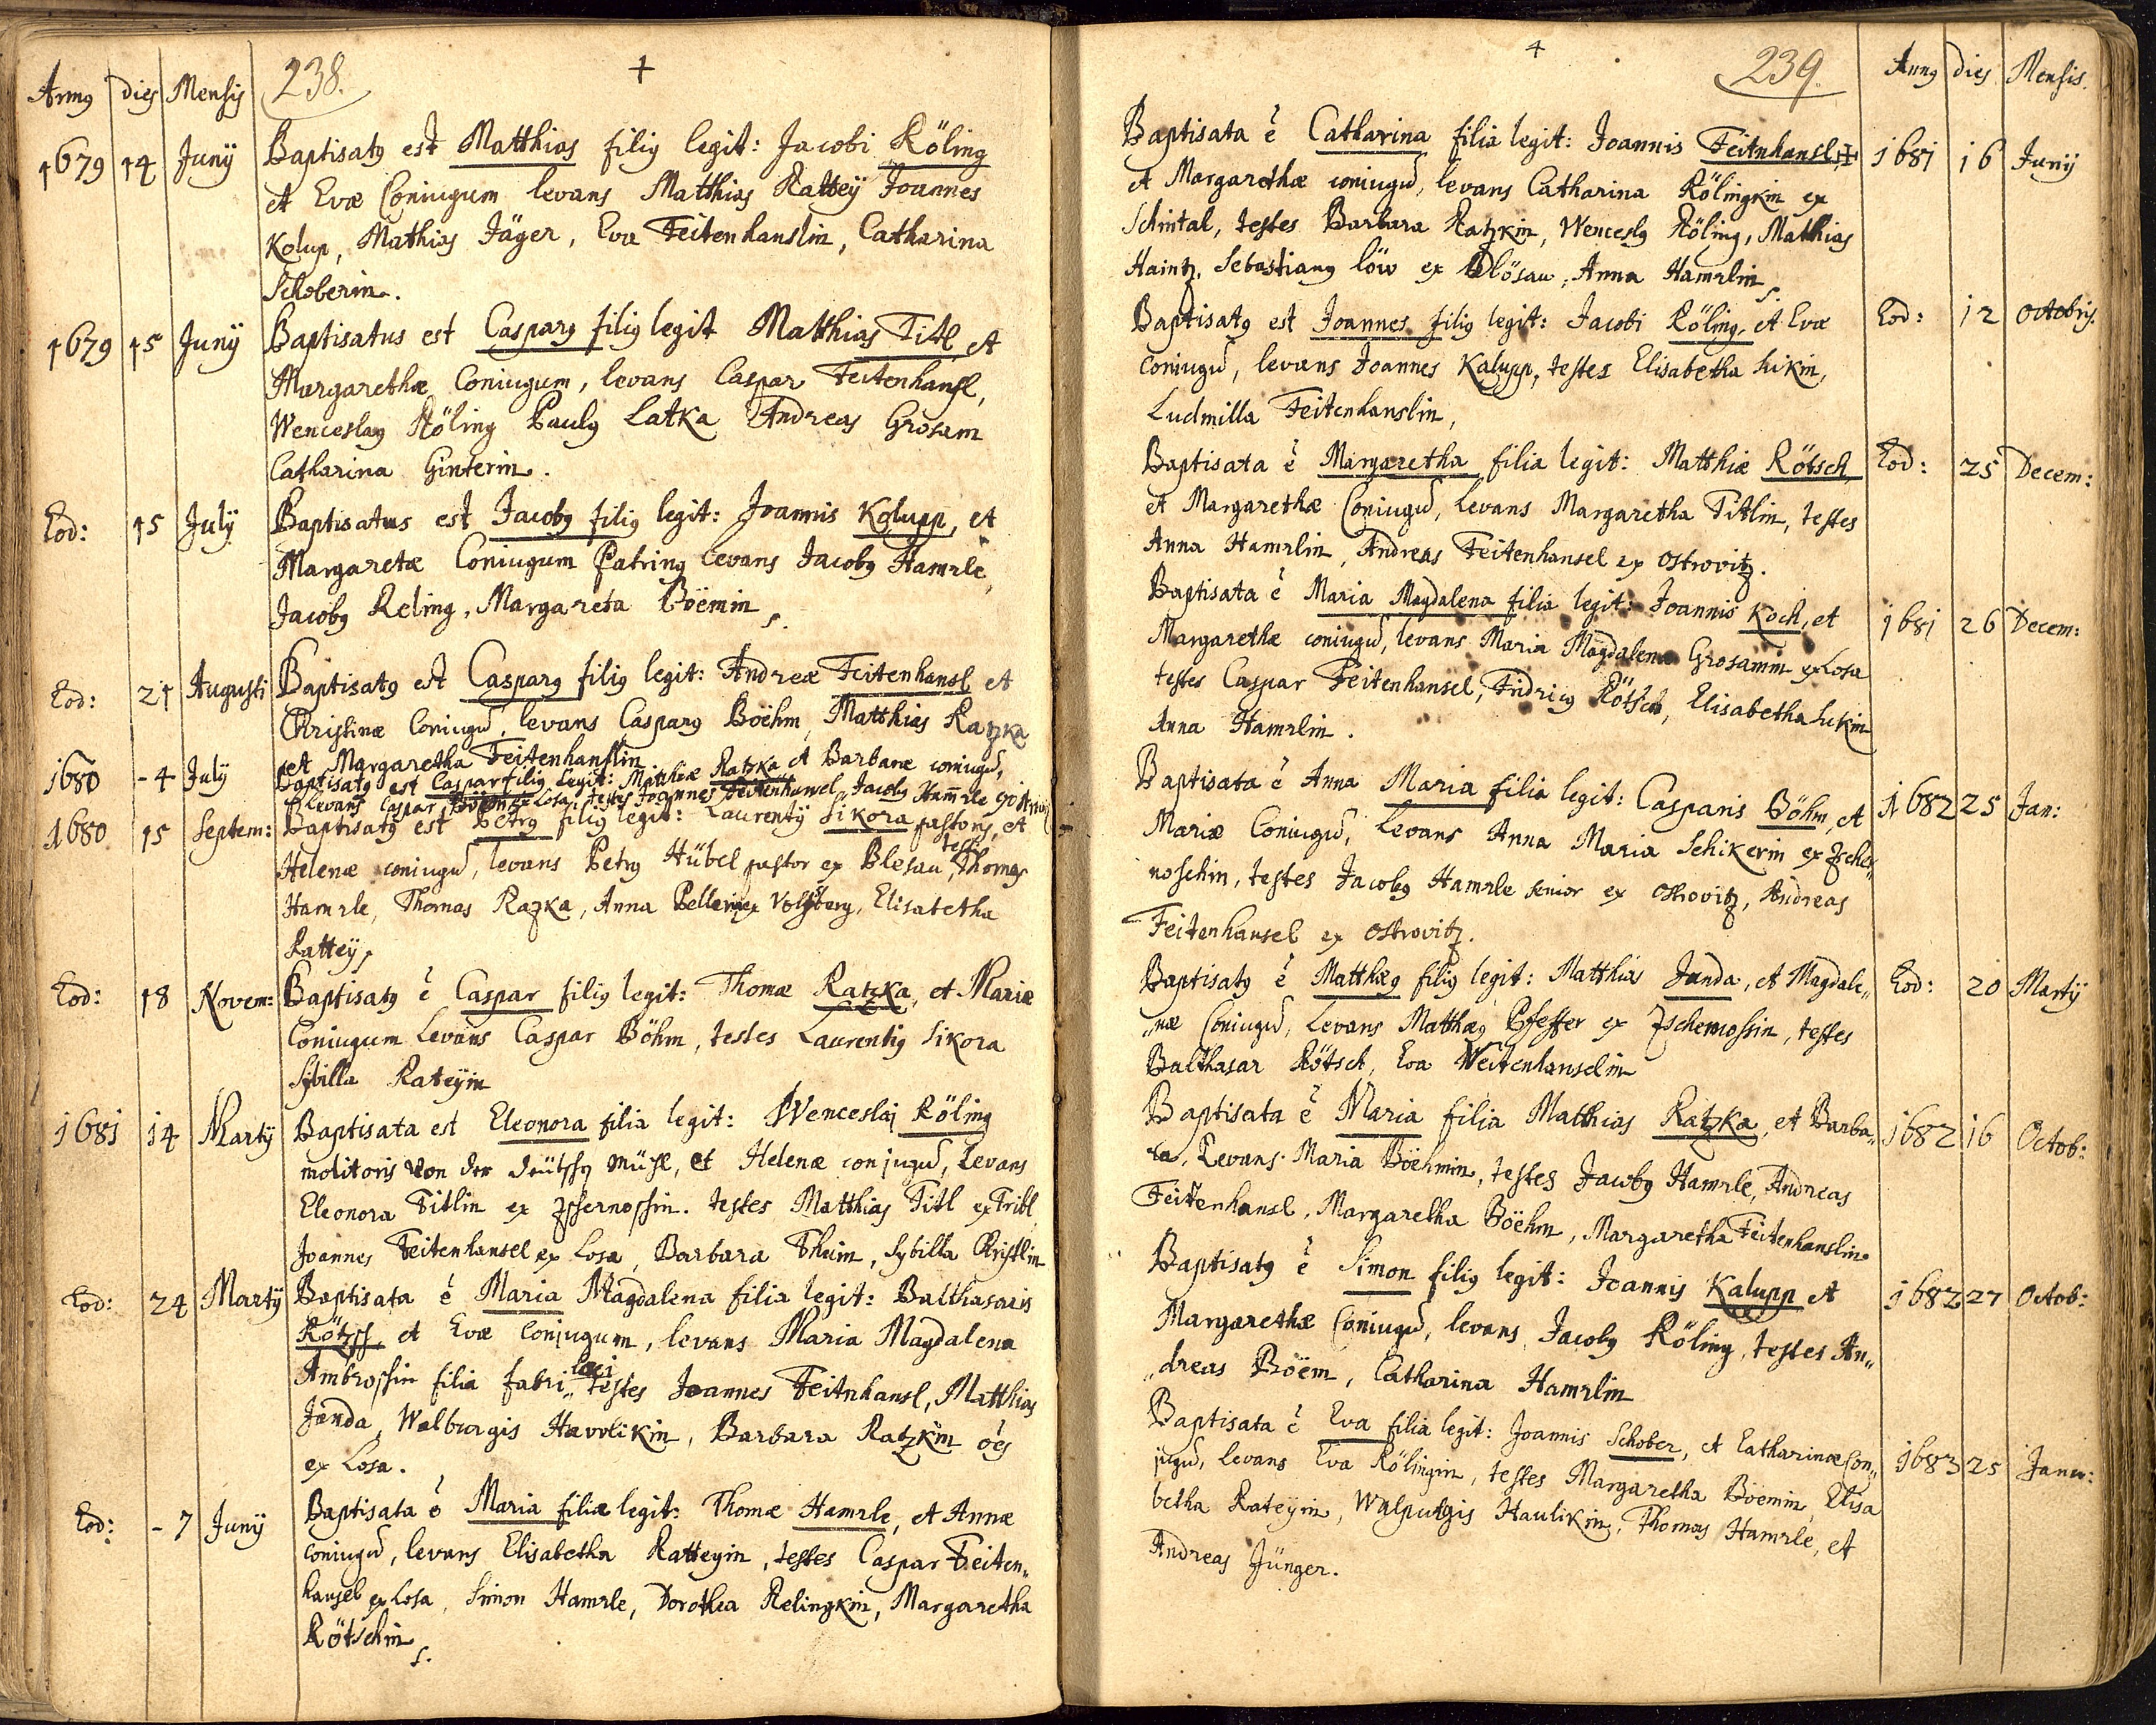 Annꝰ dies Mensis 238. +
1679 14 Junij Baptisatꝰ est Matthias filiꝰ legit: Jacobi Röling
et Evæ Coniugum levans Matthias Rattey Joannes
Kolup, Mathias Jäger, Eva Feitenhanslin, Catharina
Schoberin.
1679 15 Junij Baptisatus est Casparꝰ filiꝰ legit Matthias Titl, et
Margarethæ Coniugum, levans Caspar Feitenhansl,
Wenceslaꝰ Röling Paulꝰ Latka Andreas Grosam
Catharina Ginterin.
Eod: 15 July Baptisatus est Jacobꝰ filiꝰ legit: Joannis Kolupp, et
Margaretæ Coniugum Patrinꝰ levans Jacobꝰ Hamrle,
Jacobꝰ Reling, Margareta Boëmin s.
Eod: 21 Augusti Baptisatꝰ est Casparꝰ filiꝰ legit: Andreæ Feitenhansl et
Christinæ Coniugũ, levans Casparꝰ Boëhm, Matthias Razka
et Margaretha Feitenhanslin
1680 - 4 July Baptisatꝰ est Caspar filiꝰ Legit: Matthiæ Ratzka et Barbaræ coniugũ,
Levans Caspar Böhm ex Losa, testes Joannes Feitenhansel, Jacobꝰ Ham̃rle
1680 15 Septem: Baptisatꝰ est Petrꝰ filiꝰ legit: Laurentÿ Sikora pastoris, et
Helenæ coniugũ, levans Petrꝰ Hübel pastor ex Blesau, testes Thomas
Hamrle, Thomas Razka, Anna Pellerin ex Volsberg, Elisabetha
Rattey,
Eod: 18 Novem: Baptisatꝰ ẽ Caspar filiꝰ legit: Thomæ Ratzka, et Mariæ
Coniugum Levans Caspar Böhm, testes Laurentiꝰ Sikora
Sybilla Rateyin
1681 14 Martÿ Baptisata est Eleonora filia legit: Wenceslai Röling
molitoris von der deütschen Mühl, et Helenæ conjugũ, Levans
Eleonora Titlin ex Zschernoshin. testes Matthias Titl ex Tribl
Joannes Feitenhansel ex Losa, Barbara Thum, Sybilla Christlin
Eod: 24 Martÿ Baptisata ẽ Maria Magdalena filia legit: Balthasaris
Rötzsch, et Evæ Conjugum, levans Maria Magdalena
Ambrosshin filia fabri loci testes Joannes Feitnhansl, Matthias
Janda, Walburgis Havvlikin, Barbara Ratzkin oẽs
ex Losa.
Eod: - 7 Junij Baptisata ẽ Maria filia legit: Thomæ Hamrle, et Annæ
coniugũ, levans Elisabetha Ratteyin, testes Caspar Feiten„
hansel ex Losa, Simon Hamrle, Dorothea Relingkin, Margaretha
Rötschin s.
4 239. Annꝰ dies Mensis.
Baptisata ẽ Catharina filia legit: Joannis Feitnhansl, 1681 16 Junij
et Margarethæ coniugũ, levans Catharina Rölingkin ex
Schintal, testes Barbara Razkin, Wenceslꝰ Röling, Mathias
Haintz, Sebastianꝰ löw ex Blösau, Anna Hamrlin s.
Baptisatꝰ est Joannes filiꝰ legit: Jacobi Röling, et Evæ Eod: 12 Octobris.
coniugũ, levans Joannes Kalupp, testes Elisabetha Sikin,
Ludmilla Feitenhanslin,
Baptisata ẽ Margaretha filia legit: Matthiæ Rötsch, Eod: 25 Decem:
et Margarethæ Coniugũ, Levans Margaretha Titlin, testes
Anna Hamrlin, Andreas Feitenhansel ex Ostrovitz.
Baptisata ẽ Maria Magdalena filia legit: Joannis Koch, et 1681 26 Decem:
Margarethæ coniugũ, levans Maria Magdalena Grosamin ex Losa
testes Caspar Feitenhansel, Fridricꝰ Rötsch, Elisabetha Sikin
Anna Hamrlin.
Baptisata ẽ Anna Maria filia legit: Casparis Böhm, et 1682 25 Jan:
Mariæ Coniugũ, Levans Anna Maria Schikerin ex Zscher„
noschin, testes Jacobꝰ Hamrle senior ex Ostrovitz, Andreas
Feitenhansel ex Ostrovitz.
Baptisatꝰ ẽ Matthæꝰ filiꝰ legit: Matthias Janda, et Magdale„ Eod: 20 Martÿ
„næ Coniugũ, Levans Matthæꝰ Pfeffer ex Zschernossin, testes
Balthasar Rötsch, Eva Weitenhanselin
Baptisata ẽ Maria filia Matthias Ratzka, et Barba„ 1682 16 Octob:
ra, Levans Maria Böehmin, testes Jacobꝰ Hamrle, Andreas
Feitenhansl, Margaretha Böehm, Margaretha Feitenhanslin.
Baptisatꝰ ẽ Simon filiꝰ legit: Joannis Kalupp et 1682 27 Octob:
Margarethæ Coniugũ, levans Jacobꝰ Röling, testes An„
„dreas Böem, Catharina Hamrlin
Baptisata ẽ Eva filia legit: Joannis Schober, et Catharinæ Con„ 1683 25 Janu:
jugũ, levans Eva Rölingin, testes Margaretha Böemin, Elisa
betha Rateyin, Walpurgis Havlikin, Thomas Hamrle, et
Andreas Jünger.